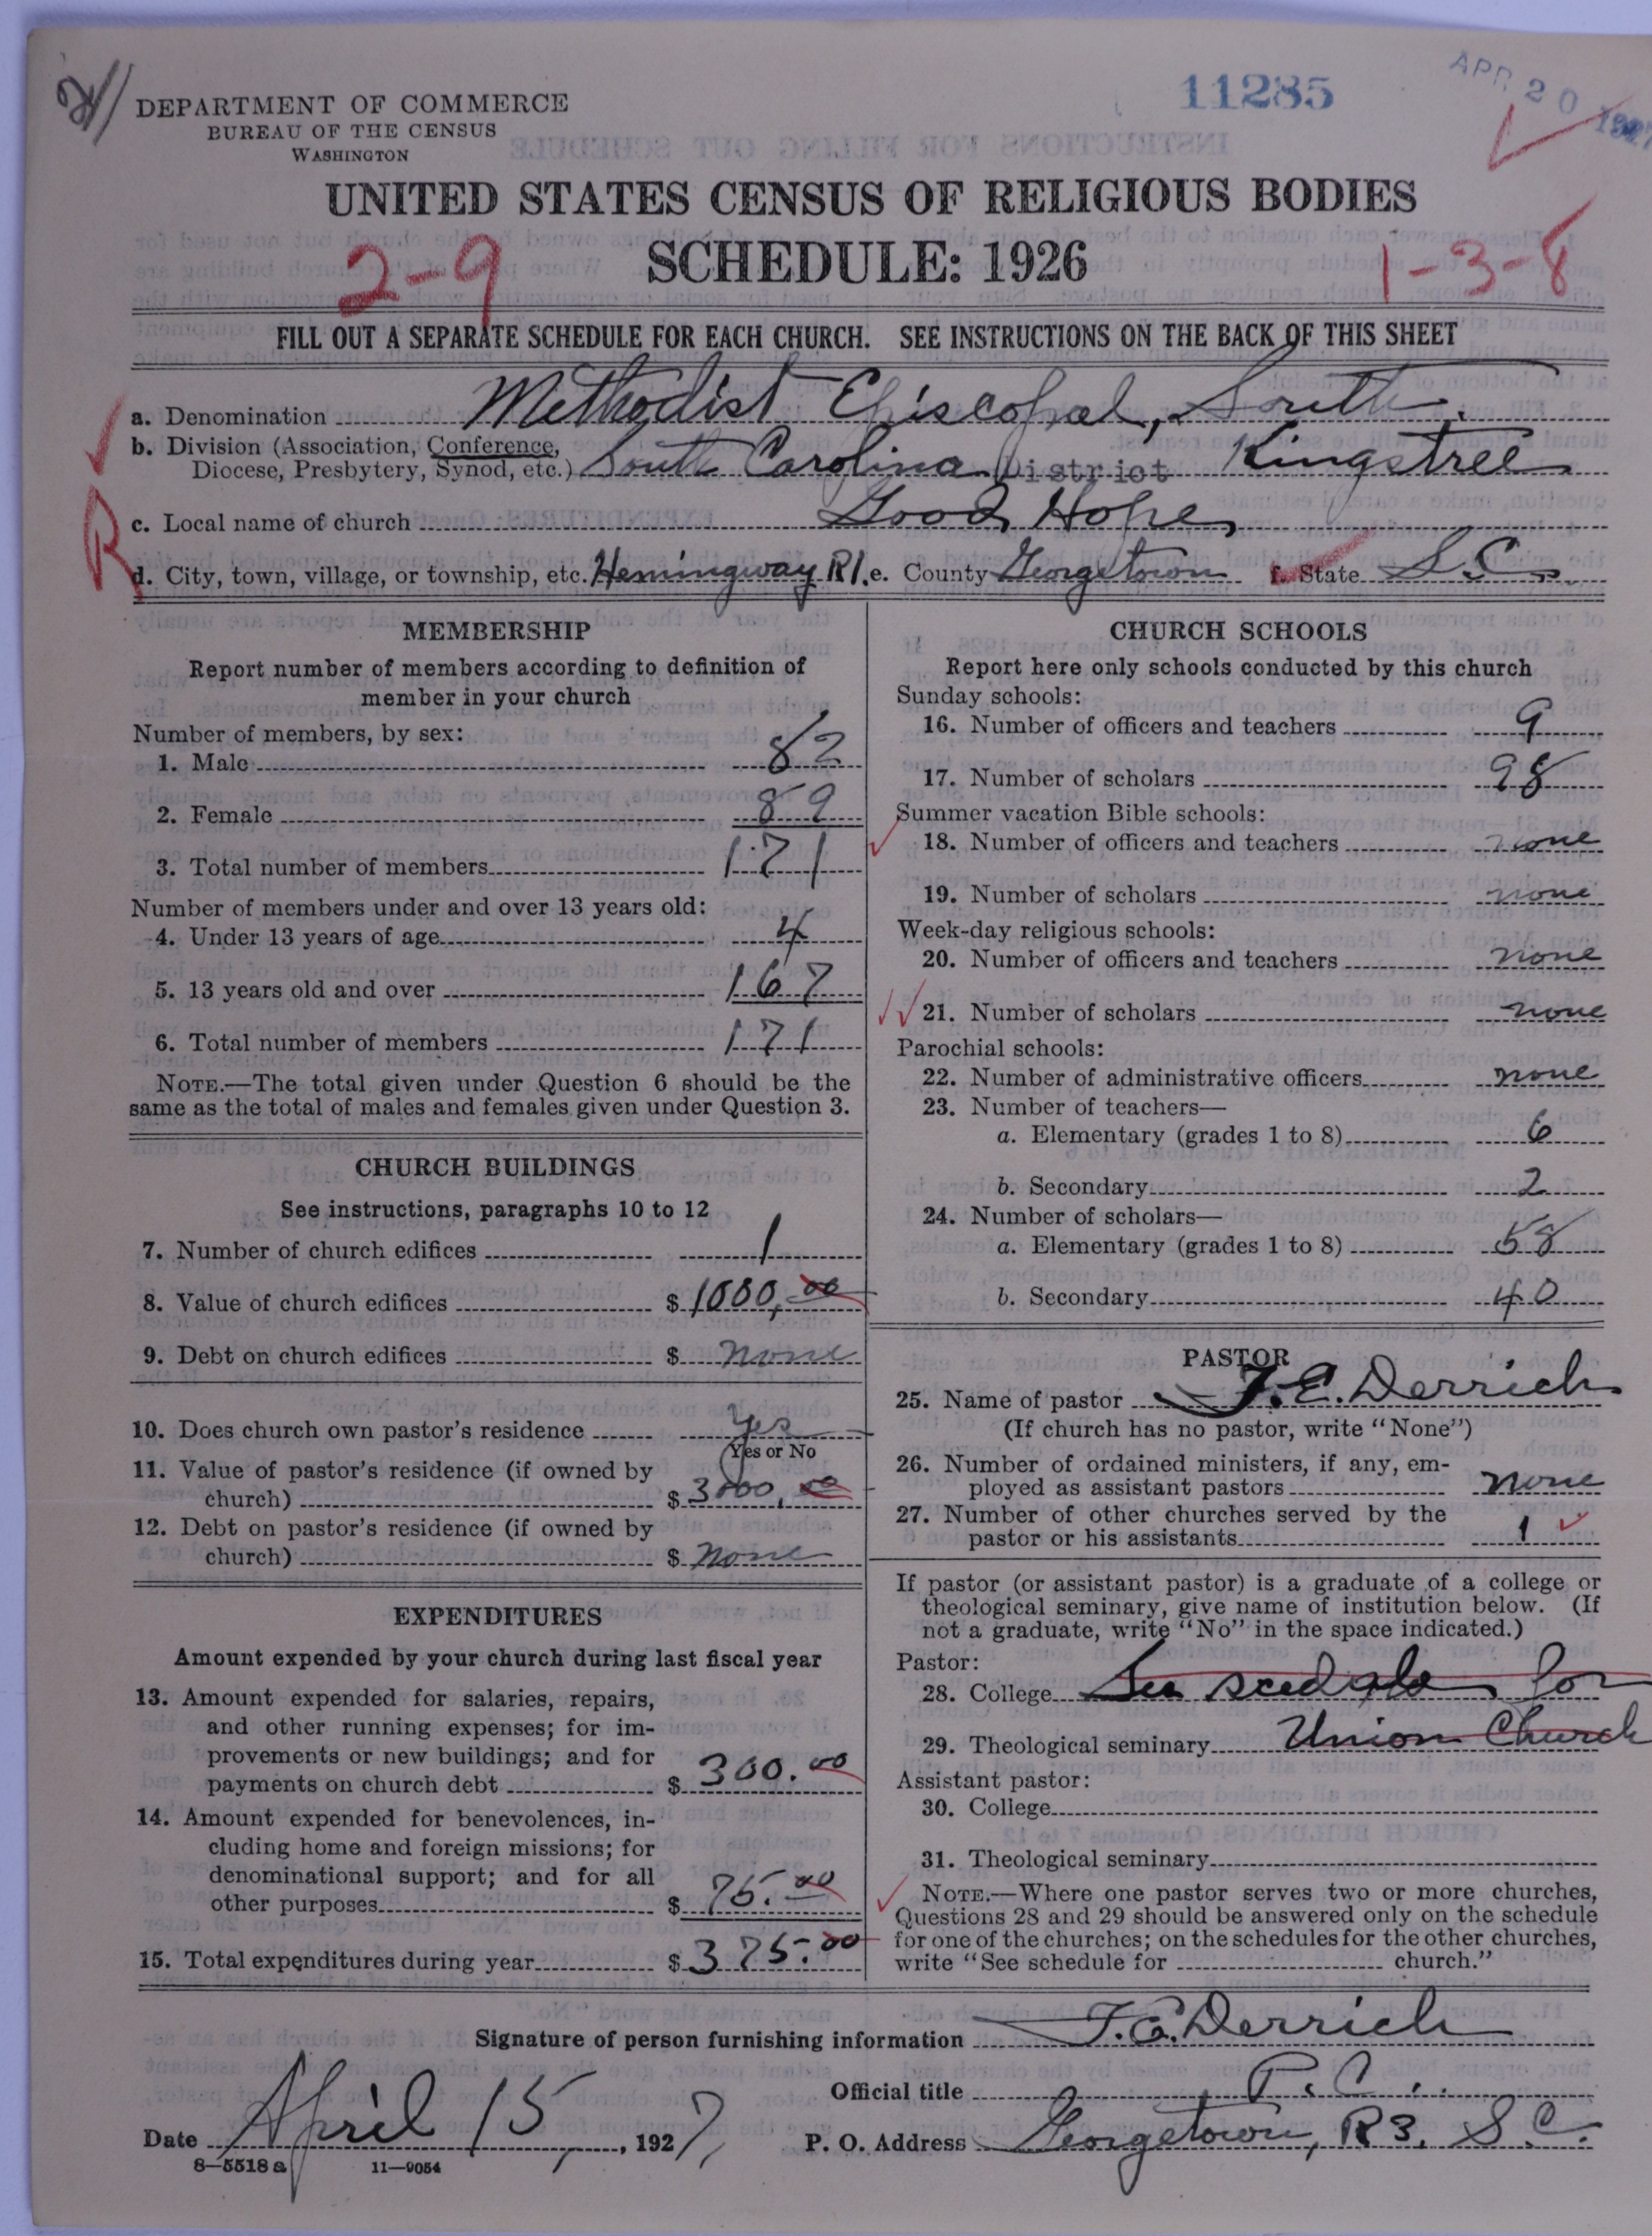 11285
APR 20 1927
DEPARTMENT OF COMMERCE
BUREAU OF THE CENSUS
WASHINGTON
UNITED STATES CENSUS OF RELIGIOUS BODIES
SCHEDULE: 1926
2-9
1-3-8
FILL OUT A SEPARATE SCHEDULE FOR EACH CHURCH. SEE INSTRUCTIONS ON THE BACK OF THIS SHEET
a. Denomination Methodist Episcopal, South.
b. Division (Association, Conference,
Diocese, Presbytery, Synod, etc.) South Carolina District Kingstree
c. Local name of church Good Hope
R
d. City, town, village, or township, etc. Hemingway R1. e. County Georgetown f. State S.C.
MEMBERSHIP
Report number of members according to definition of
member in your church
Number of members, by sex:
1. Male 82
2. Female 89
3. Total number of members 171
Number of members under and over 13 years old:
4. Under 13 years of age 4
5. 13 years old and over 167
6. Total number of members 171
NOTE.—The total given under Question 6 should be the
same as the total of males and females given under Question 3.
CHURCH BUILDINGS
See instructions, paragraphs 10 to 12
7. Number of church edifices 1
8. Value of church edifices $ 1000,00
9. Debt on church edifices $ none
10. Does church own pastor's residence Yes
(Yes or No
11. Value of pastor's residence (if owned by
church) $ 3000,00
12. Debt on pastor's residence (if owned by
church) $ none
EXPENDITURES
Amount expended by your church during last fiscal year
13. Amount expended for salaries, repairs,
and other running expenses; for im-
provements or new buildings; and for
payments on church debt $ 300.00
14. Amount expended for benevolences, in-
cluding home and foreign missions; for
denominational support; and for all
other purposes $ 75.00
15. Total expenditures during year $ 375.00
CHURCH SCHOOLS
Report here only schools conducted by this church
Sunday schools:
16. Number of officers and teachers 9
17. Number of scholars 98
Summer vacation Bible schools:
18. Number of officers and teachers none
19. Number of scholars none
Week-day religious schools:
20. Number of officers and teachers none
21. Number of scholars none
Parochial schools:
22. Number of administrative officers none
23. Number of teachers—
a. Elementary (grades 1 to 8) 6
b. Secondary 2
24. Number of scholars—
a. Elementary (grades 1 to 8) 58
b. Secondary 40
PASTOR
25. Name of pastor F.E. Derrick
(If church has no pastor, write "None")
26. Number of ordained ministers, if any, em-
ployed as assistant pastors none
27. Number of other churches served by the
pastor or his assistants 1
If pastor (or assistant pastor) is a graduate of a college or
theological seminary, give name of institution below. (If
not a graduate, write "No" in the space indicated.)
Pastor:
28. College See for
29. Theological seminary Union Church
Assistant pastor:
30. College
31. Theological seminary
NOTE.—Where one pastor serves two or more churches,
Questions 28 and 29 should be answered only on the schedule
for one of the churches; on the schedules for the other churches,
write "See schedule for church."
Signature of person furnishing information Derrick
Official title P.C.
Date April 15, 1927, P. O. Address Georgetown, R3, S.C.
8—5518 a 11—9054